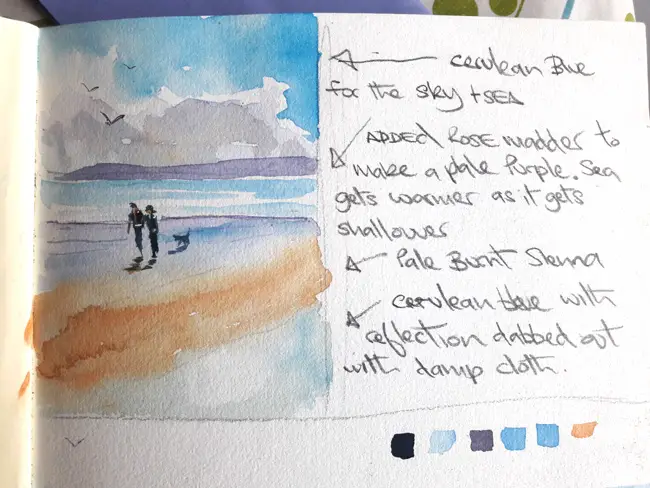 cerulean Blue
for the sky + SEA
ADDED ROSE madder to
make a pale purple. Sea
gets warmer as it gets
shallower
Pale Burnt Sienna
cerulean blue with
reflection dabbed out
with damp cloth.